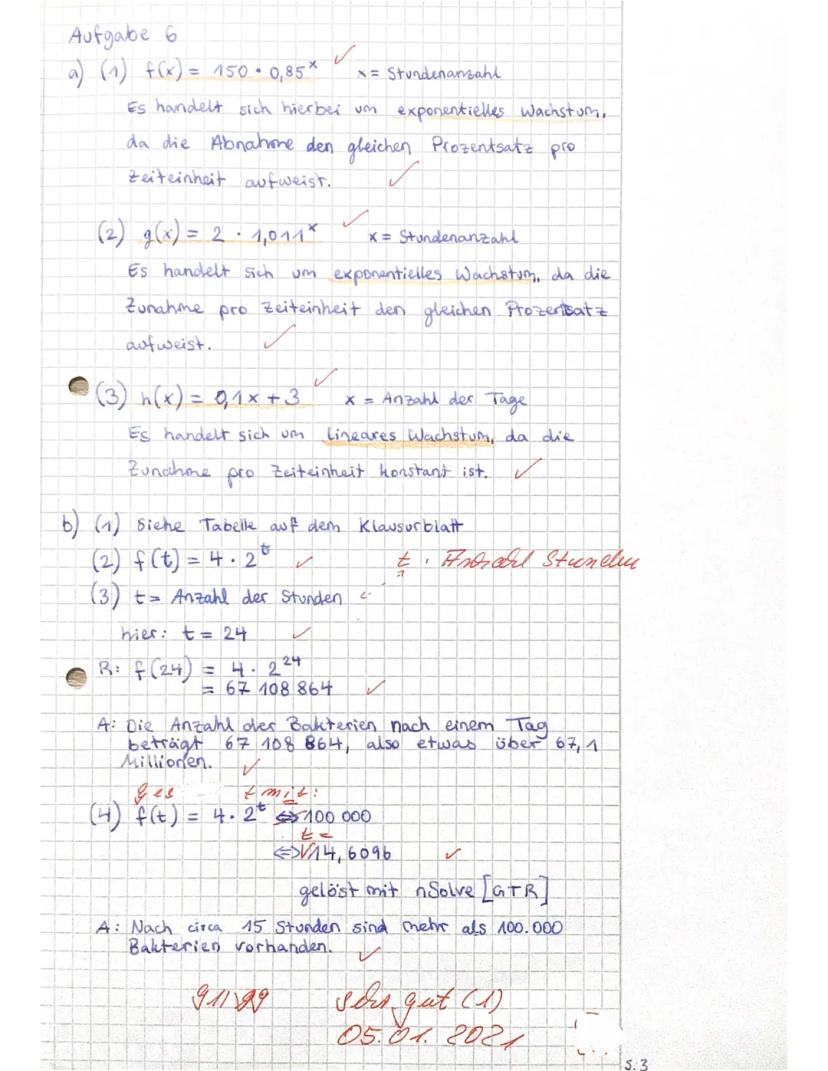 Aufgabe 6
a) (1) f(x) = 150 • 0,85^x ✓ x = Stundenanzahl
Es handelt sich hierbei um exponentielles Wachstum,
da die Abnahme den gleichen Prozentsatz pro
Zeiteinheit aufweist. ✓
(2) g(x) = 2 · 1,011^x ✓ x = Stundenanzahl
Es handelt sich um exponentielles Wachstum, da die
Zunahme pro Zeiteinheit den gleichen Prozentsatz
aufweist. ✓
(3) h(x) = 0,1x + 3 ✓ x = Anzahl der Tage
Es handelt sich um lineares Wachstum, da die
Zunahme pro Zeiteinheit konstant ist. ✓
b) (1) Siehe Tabelle auf dem Klausurblatt
(2) f(t) = 4 · 2^t ✓ t : Anzahl Stunden
(3) t = Anzahl der Stunden
hier: t = 24 ✓
R: f(24) = 4 · 2^24
= 67 108 864 ✓
A: Die Anzahl der Bakterien nach einem Tag
beträgt 67 108 864, also etwas über 67,1
Millionen. ✓
ges t mit:
(4) f(t) = 4 · 2^t = 100 000
t =
⇔ 14,6096 ✓
gelöst mit nSolve [GTR]
A: Nach circa 15 Stunden sind mehr als 100.000
Bakterien vorhanden. ✓
sehr gut (1)
05.01.2021
S.3